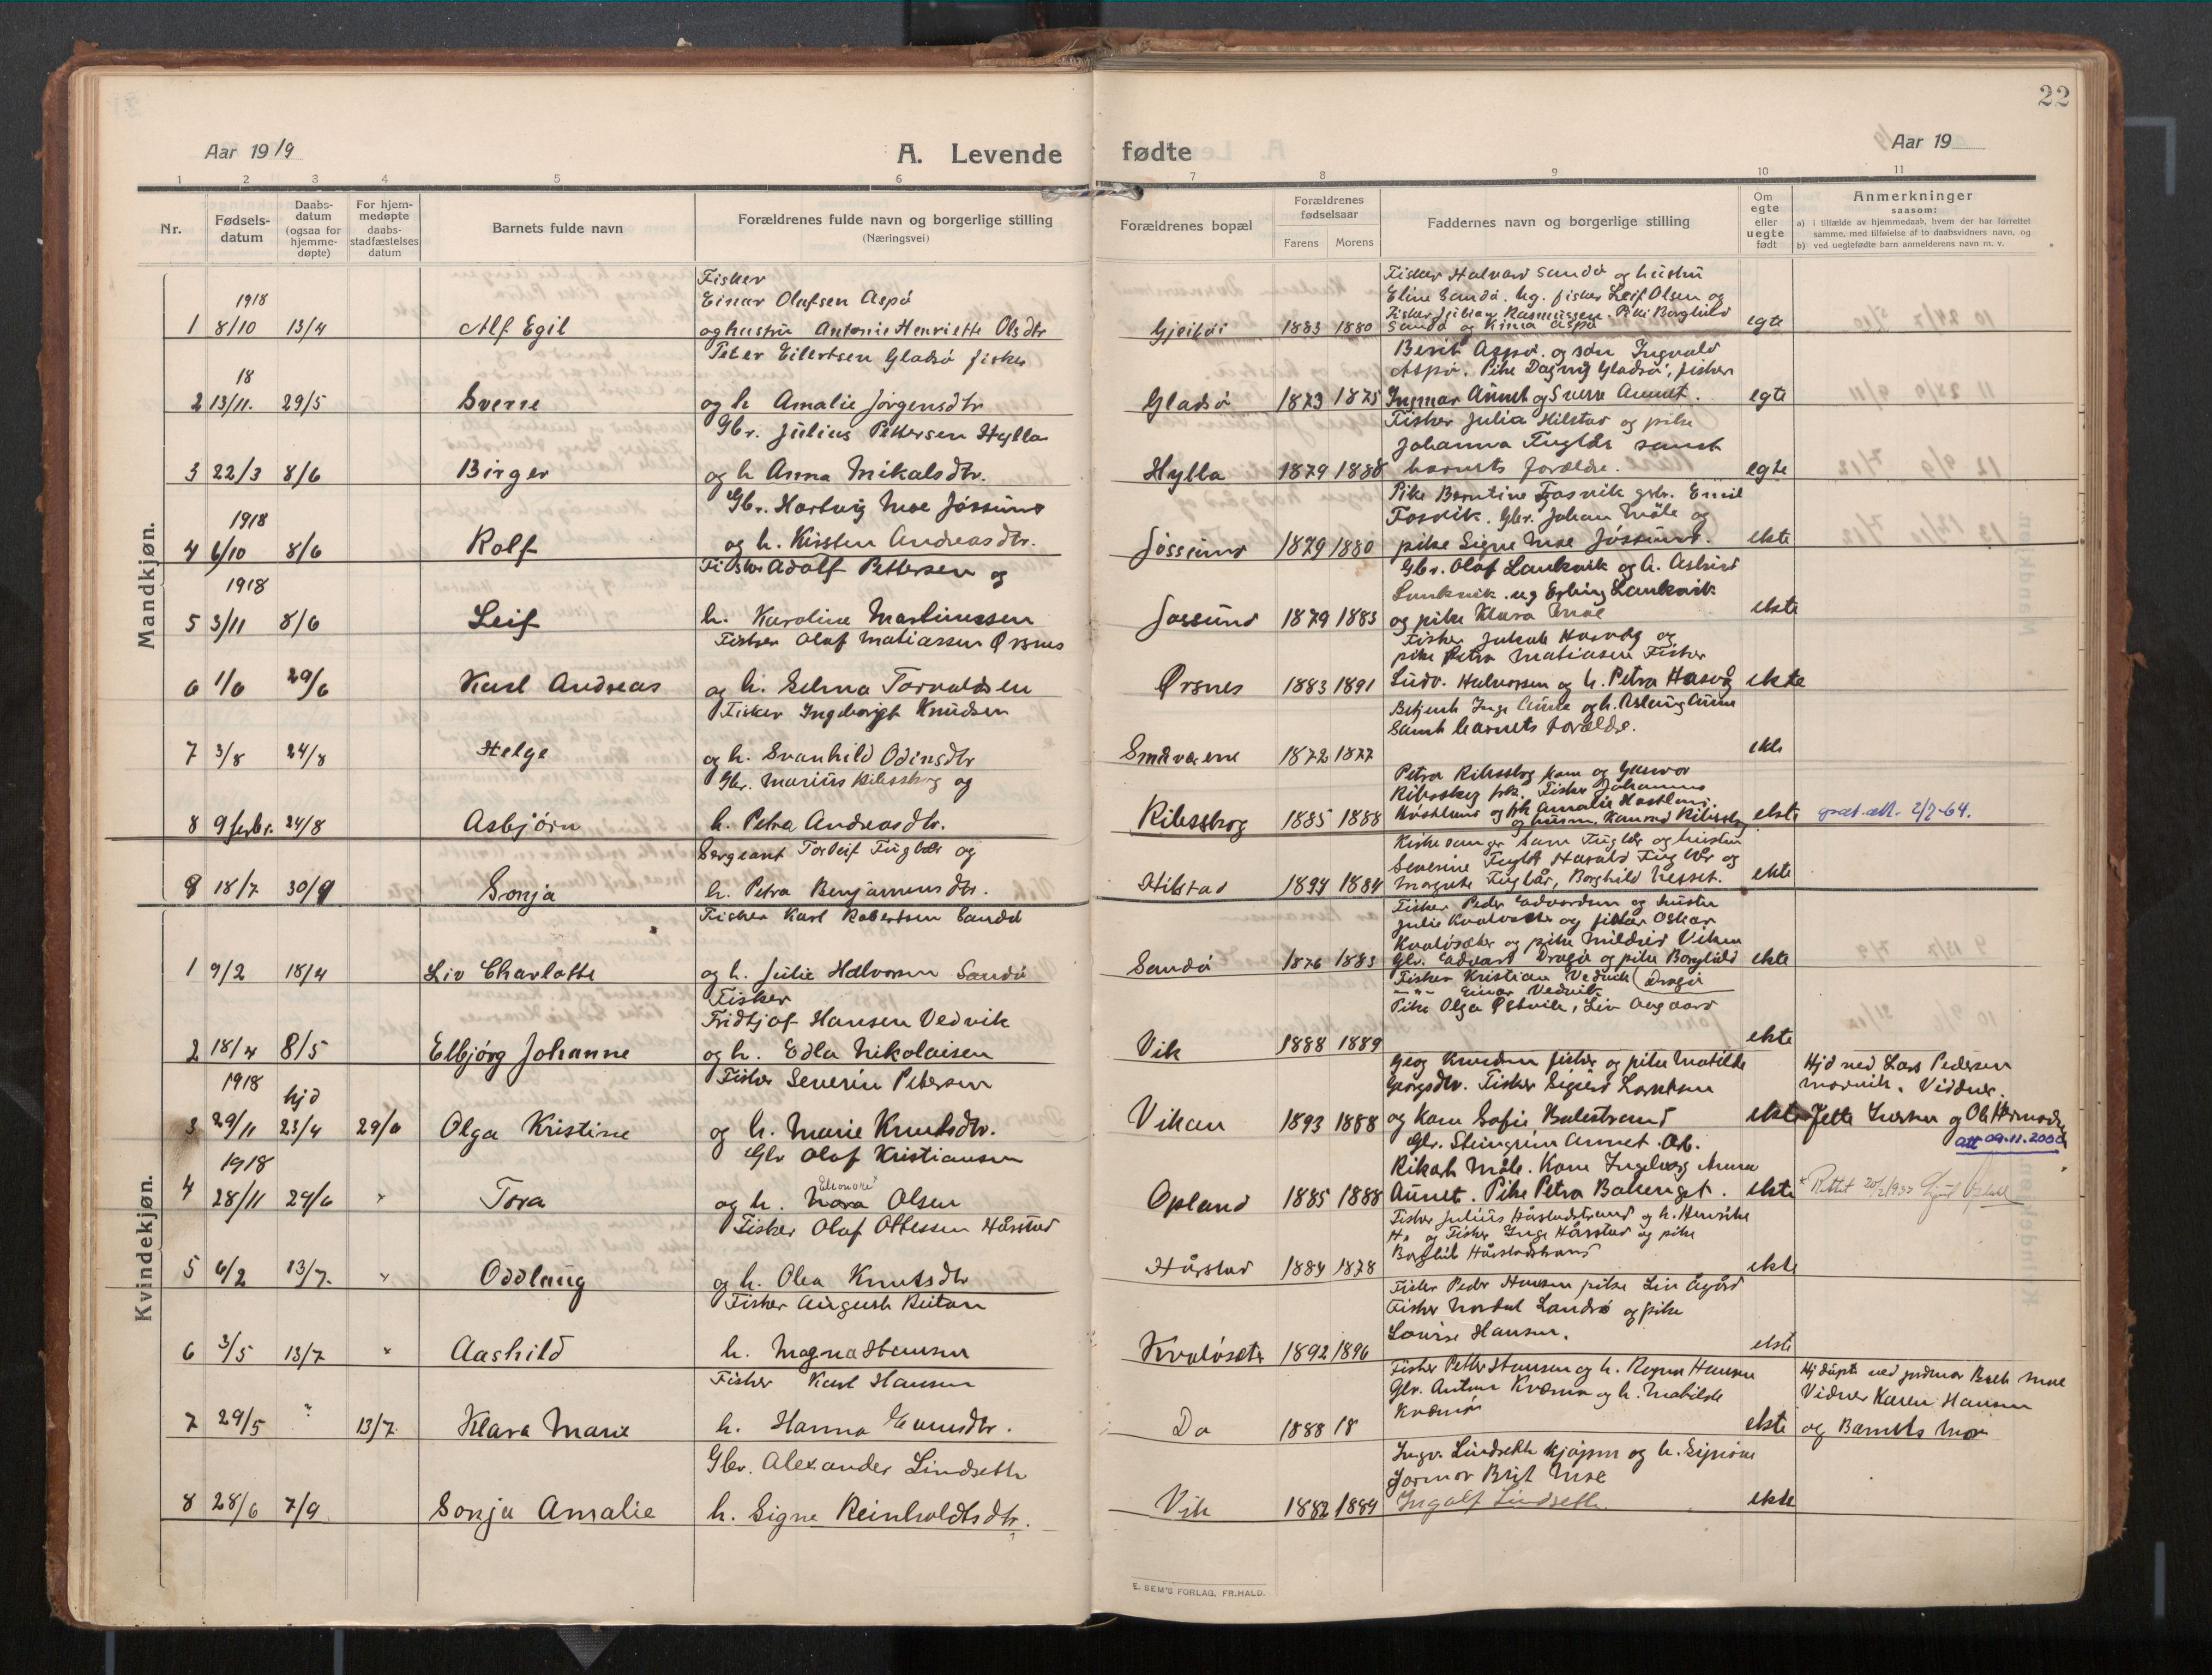 22
Aar 1919
A. Levende fødte
Aar 19
1 2 3 4 5 6 7 8 9 10 11
Nr.
Fødsels-
datum
Daabs-
datum
(ogsaa for
hjemme-
døpte)
For hjem-
medøpte
daabs-
stadfæstelses
datum
Barnets fulde navn
Forældrenes fulde navn og borgerlige stilling
(Næringsvei)
Forældrenes bopæl
Forældrenes
fødselsaar
Farens Morens
Faddernes navn og borgerlige stilling
Om
egte
eller
uegte
født
Anmerkninger
saasom:
a) i tilfælde av hjemmedaab, hvem der har forrettet
samme, med tilføielse af to daabsvidners navn, og
b) ved uegtefødte barn anmelderens navn m. v.
Mandkjøn.
1 1918 8/10 13/4 Alf Egil
Fisker
Einar Olafsen Aspø
og hustru Antonie Henriette Olsdtr
Gjeitøi 1883 1880
Fisker Halvard Sandø og hustru
Eline Sandø. Ug. fisker Leif Olsen og
Fisker Julian Rasmussen. Pike Borghild
Sandø og Aspø
egte
2 18 13/11. 29/5 Sverre
Peter Eilertsen Gladsø fisker
og h Amalie Jørgensdtr
Gladsø 1873 1875
Berit Aspø. og søn Ingvald
Aspø. Pike Dagny Gladsø, fisker
Ingmar Aunet og Sverre Aunet.
egte
3 22/3 8/6 Birger
Gbr. Julius Pettersen Hylla
og h Anna Mikalsdtr.
Hylla 1879 1888
Fisker Julia Hilstad og pike
Johanna Fuglår samt
barnets forældre.
egte
4 1918 6/10 8/6 Rolf
Gbr. Hartvig Moe Jøssund
og h. Kirsten Andreasdtr.
Jøssund 1879 1880
Pike Berntine Fosvik gbr. Emil
Fosvik. Gbr. Johan Måle og
pike Signe Moe Jøssund.
ekte
5 1918 3/11 8/6 Leif
Fisker Adolf Pettersen og
h. Karoline Martinussen
Jøssund 1879 1883
Gbr. Olaf Laukvik og h. Astrid
Laukvik. ug Erling Laukvik
og pike Klara Moe
ekte
6 1/6 29/6 Karl Andreas
Fisker Olaf Matiassen Ørsnes
og h. Selma Torvaldsen
Ørsnes 1883 1891
Fisker Jakob Hasvåg og
pike Petra Matiasen Fisker
Ludv. Halvorsen og h. Petra Hasvåg
ekte
7 3/8 24/8 Helge
Fisker Ingeborgt Knudsen
og h. Svanhild Odinsdtr
Småværene 1872 1877
Betjent Inge Aune og h. Aslaug Aune
Samt barnets forældre.
ekte
8 9 febr. 24/8 Asbjørn
Gbr. Marius Ribesskog og
h. Petra Andreasdtr.
Ribesskog 1885 1888
Petra Ribsskog kone og Gunvor
Ribsskog frk. Fisker Johannes
og frk Amalie
Konrad Ribsskog
ekte
att. 2/2-64.
9 18/7 30/9 Sonja
Sergeant Torleif Fuglår og
h. Petra Benjaminsdtr.
Hilstad 1894 1884
Kirkesanger Fuglår og hustru
Severine Fuglår Harald Fuglår og
Margrete Fuglår, Borghild Nesset.
ekte
Kvindekjøn.
1 9/2 18/4 Liv Charlotte
Fisker Karl Robertsen Sandø
og h. Julie Halvorsen Sandø
Sandø 1876 1883
Fisker Peder Edvardsen og hustru
Julie Kvaløsæter og fisker Oskar
Kvaløsæter og pike Mildrid Viken
Gbr. Edvart Dragø og pike Borghild
Dragø
ekte
2 18/4 8/5 Elbjørg Johanne
Fisker
Fridtjof Hansen Vedvik
og h. Edla Nikolaisen
Vik 1888 1889
Fisker Kristian Vedvik
-"- Einar Vedvik
Pike Olga Pstvik, Liv Aagaard
ekte
3 1918 29/11 hjd 23/4 29/6 Olga Kristine
Fisker Severin Petersen
og h. Marie Knutsdtr.
Vikan 1893 1888
Georg Knudsen fisker og pike Matilde
Georgsdtr. Fisker Sigurd Larsen
og kone Sofie Balestrand
ekte
Hjd ved Lars Pedersen
Vidner.
Jette Iversen og Ole
att 09.11.2000
4 1918 28/11 29/6 " Tora
Gbr Olaf Kristiansen
og h. Eleonore Nora Olsen
Opland 1885 1888
Gbr. Steingrim Aunet. Arb.
Rikart Måle. Kone Ingeborg Anna
Aunet. Pike Petra Bakenget.
ekte
* Rettet 20/2 1937
5 6/2 13/7. " Oddlaug
Fisker Olaf Ottessen Hårstad
og h. Olea Knutsdtr
Hårstad 1884 1878
Fisker Julius Hårstadstrand og h. Henrikke
H. og Fisker Inge Hårstad og pike
Borghild Hårstadstrand
ekte
6 3/5 13/7 " Aashild
Fisker August Reitan
h. Magna Hansen
Kvaløsæter 1892 1896
Fisker Peder Hansen pike Liv Ågård
Fisker Nordal Sandsø og pike
Lovise Hansen.
ekte
7 29/5 " 13/7 Klara Marie
Fisker Karl Hansen
h. Hanna Evensdtr.
Do 1888 18
Fisker Petter Hansen og h. Ragna Hansen
Gbr. Anton Kvernø og h. Mabilde
Kvernø
ekte
Hjdøpt ved jordmor Berit Moe
Vidner Karen Hansen
og Barnets Mor
8 28/6 7/9 Sonja Amalie
Gbr. Alexander Lindseth
h. Signe Reinholdtsdtr.
Vik 1882 1889
Ingv. Lindseth kjøpm og h. Signora
Jormor Brit Moe
Ingolf Lindseth.
ekte
E. SEM'S FORLAG, FR.HALD.